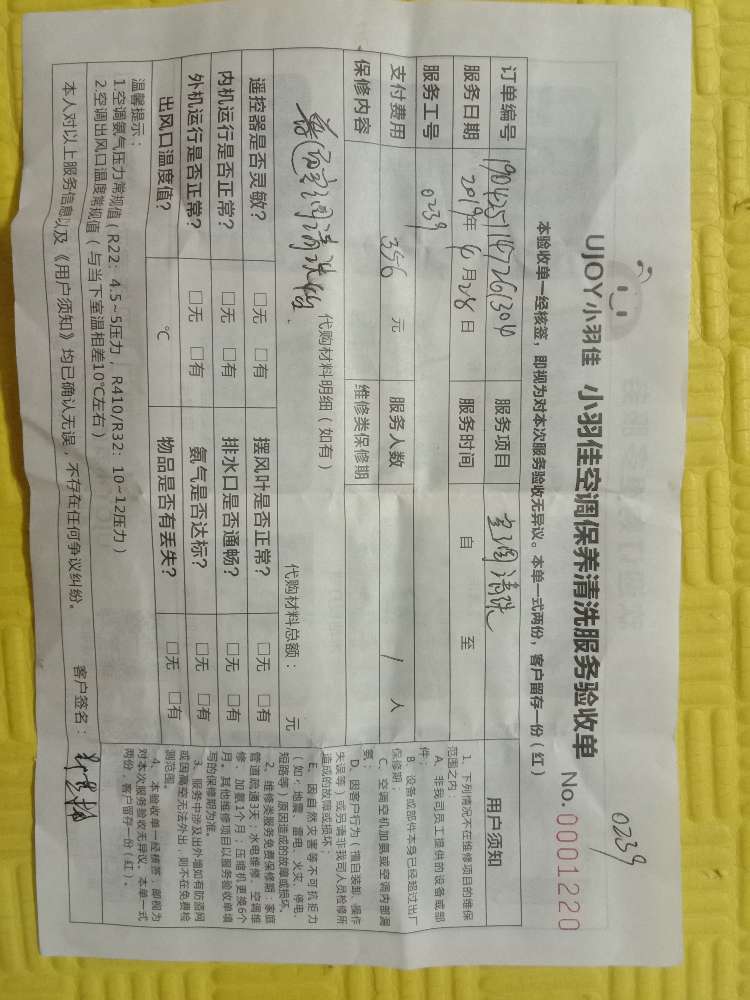 0239
UJOY小羽佳 小羽佳空调保养清洗服务验收单 No. 0001220
本验收单一经核签，即视为对本次服务验收无异议。本单一式两份，客户留存一份（红）
订单编号 服务项目 空调清洗
服务日期 2019年 4月28日 服务时间 自 至
服务工号 0239
支付费用 356 元 服务人数 1 人
保修内容 维修类保修期
代购材料明细（如有） 代购材料总额： 元
遥控器是否灵敏？ □无 □有 摆风叶是否正常？ □无 □有
内机运行是否正常？ □无 □有 排水口是否通畅？ □无 □有
外机运行是否正常？ □无 □有 氨气是否达标？ □无 □有
出风口温度值？ ℃ 物品是否有丢失？ □无 □有
温馨提示：
1.空调氨气压力常规值（R22：4.5~5压力，R410/R32：10~12压力）
2.空调出风口温度常规值（与当下室温相差10℃左右）
本人对以上服务信息以及《用户须知》均已确认无误，不存在任何争议纠纷。 客户签名：
用户须知
1、下列情况不在维修项目的维保
范围之内：
A、非我司员工提供的设备或部
件；
B、设备或部件本身已经超过出厂
保修期；
C、空调空机加氨或空调内部漏
氨；
D、因客户行为（擅自装卸、操作
失误等）或另请非我司人员检修所
造成的故障或损坏；
E、因自然灾害等不可抗拒力
（如：地震、雷电、火灾、停电、
短路等）原因造成的故障或损坏。
2、维修类服务免费保修期：家庭
管道疏通3天；水电维修、空调维
修、加氨1个月；压缩机更换6个
月。其他维修项目以服务验收单填
写的保修期为准。
3、服务中涉及出外墙如有防盗网
或因高空无法外出，则不在免费检
测范围。
4、本验收单一经核签，即视为
对本次服务验收无异议。本单一式
两份，客户留存一份（红）。